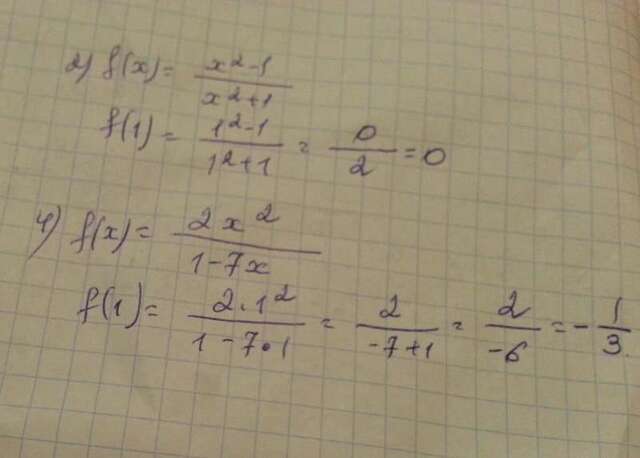 2) f(x) = (x²-1)/(x²+1)
f(1) = (1²-1)/(1²+1) = 0/2 = 0
4) f(x) = 2x²/(1-7x)
f(1) = (2·1²)/(1-7·1) = 2/(-7+1) = 2/(-6) = -1/3